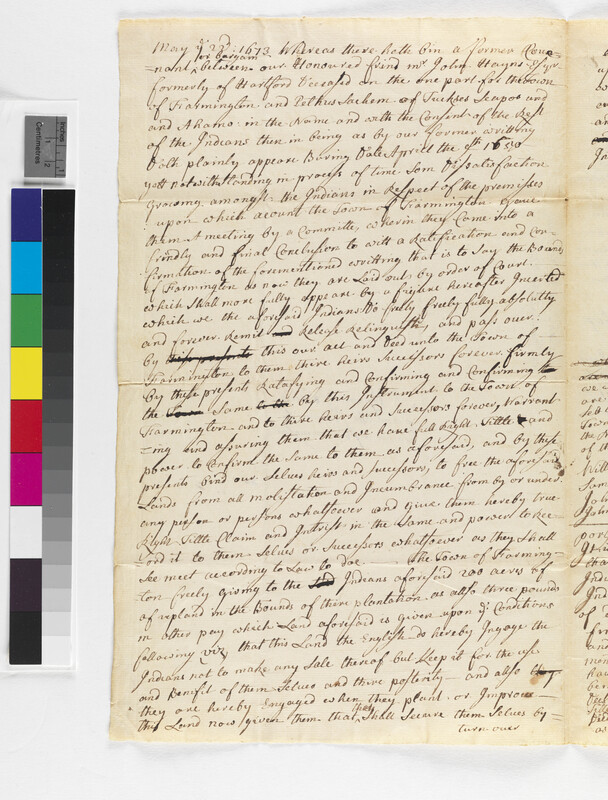 May ye 22d: 1673 Whereas there hath bin a former Cove=
or bargain
=nant between our Honoured frind mr John Hayns Esqr
formerly of Hartford Deceased on the one part for the Town
of Farmington and Pethus Sachem of Tuckses Seapos and
and Ahamo in the Name and with the Consent of the Rest
of the Indians then in being as by our former writting
Doth plainly appeare Baring Date Aprill the 9th 1650
yett notwithstanding in process of time Som Dissatisfaction
Growing amongst the Indians in Respect of the premisses
upon which acount the Town of Farmington Gave
them A meeting by a Committe, wherin they Come Into a
frindly and final Conclusion to witt a Ratification and Con-
firmation of the forementioned writting that is to Say the Bounds
of Farmington as now they are Laid out by order of Court.
which Shall more fully appeare by a figure hereafter Incerted
which we the aforesaid Indians Do freely freely fully absolutly
and forever Remit and Relese Relinquish, and pass over
by these presents this our act and Deed unto the Town of
Farmington to them thire heirs Successors forever, firmly
by these presents Ratafying and Confirming and Confirming
the Town Same to the by this Instrument to the Town of
Farmington and to there heirs and Successors forever, warrant
=ing and assuring them that we have full Right Tittle and
power to Confirm the same to them as aforesaid, and by these
presents bind our Selves heirs and successors, to free the aforesaid
Lands from all molistation and Incumbrance from by or under
any person or persons whatsoever and give them hereby true
Right Tittle Claim and Intrist in the Same and power to Rec-
cord it to them Selves or Successors whatsoever as they Shall
See meet according to Law to doe the Town of Farming-
ton freely giving to the Indians aforesaid 200 acres of
upland in the Bounds of there plantation as allso three pounds
in other pay which Land aforesaid is given upon ye Conditions
following viz that this Land the English do hereby Ingage the
Indians not to make any Sale thereof but Keep it for the use
and Benifit of them Selves and thire posterity and also
they are hereby Engaged when they plant or Improve
they
this Land now given them that Shall Secure them Selves by
turn over